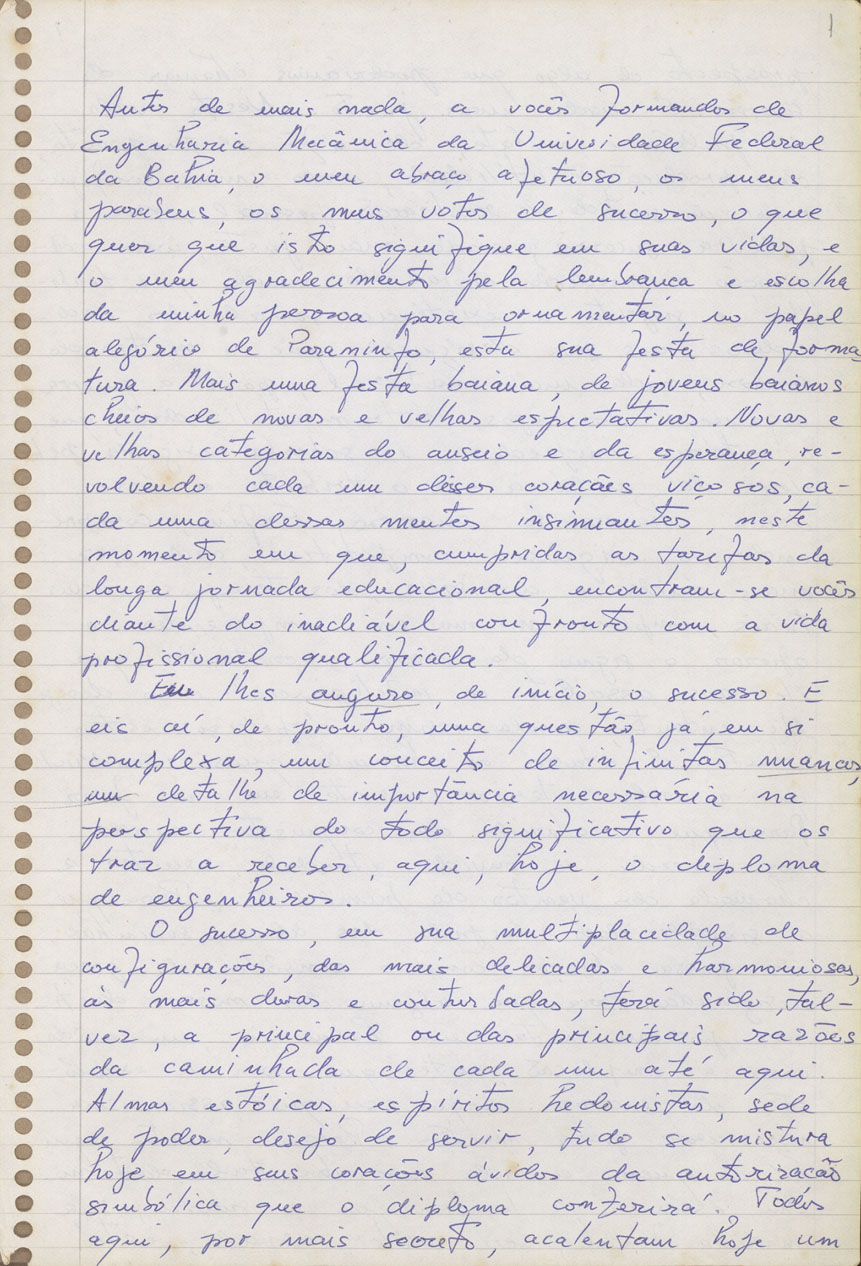 1
Antes de mais nada, a vocês formandos de
Engenharia Mecânica da Universidade Federal
da Bahia, o meu abraço afetuoso, os meus
parabens, os meus votos de sucesso, o que
quer que isto signifique em suas vidas, e
o meu agradecimento pela lembranca e escolha
da minha pessoa para ornamentar, no papel
alegórico de Paraninfo, esta sua festa de forma-
tura. Mais uma festa baiana, de jovens baianos
cheios de novas e velhas espectativas. Novas e
velhas categorias do anseio e da esperança, re-
volvendo cada um desses corações viçosos, ca-
da uma dessas mentes insinuantes, neste
momento em que, cumpridas as tarefas da
longa jornada educacional, encontram-se vocês
diante do inadiável confronto com a vida
profissional qualificada.
Eu lhes auguro, de início, o sucesso. E
eis aí, de pronto, uma questão já em si
complexa, um conceito de infinitas nuances,
um detalhe de importância necessária na
perspectiva do todo significativo que os
traz a receber, aqui, hoje, o diploma
de engenheiros.
O sucesso, em sua multiplacidade de
configurações, das mais delicadas e harmoniosas,
às mais duras e conturbadas, terá sido, tal-
vez, a principal ou das principais razões
da caminhada de cada um até aqui.
Almas estóicas, espíritos hedonistas, sede
de poder, desejo de servir, tudo se mistura
hoje em seus corações ávidos da autorização
simbólica que o diploma conferirá. Todos
aqui, por mais secreto, acalentam hoje um